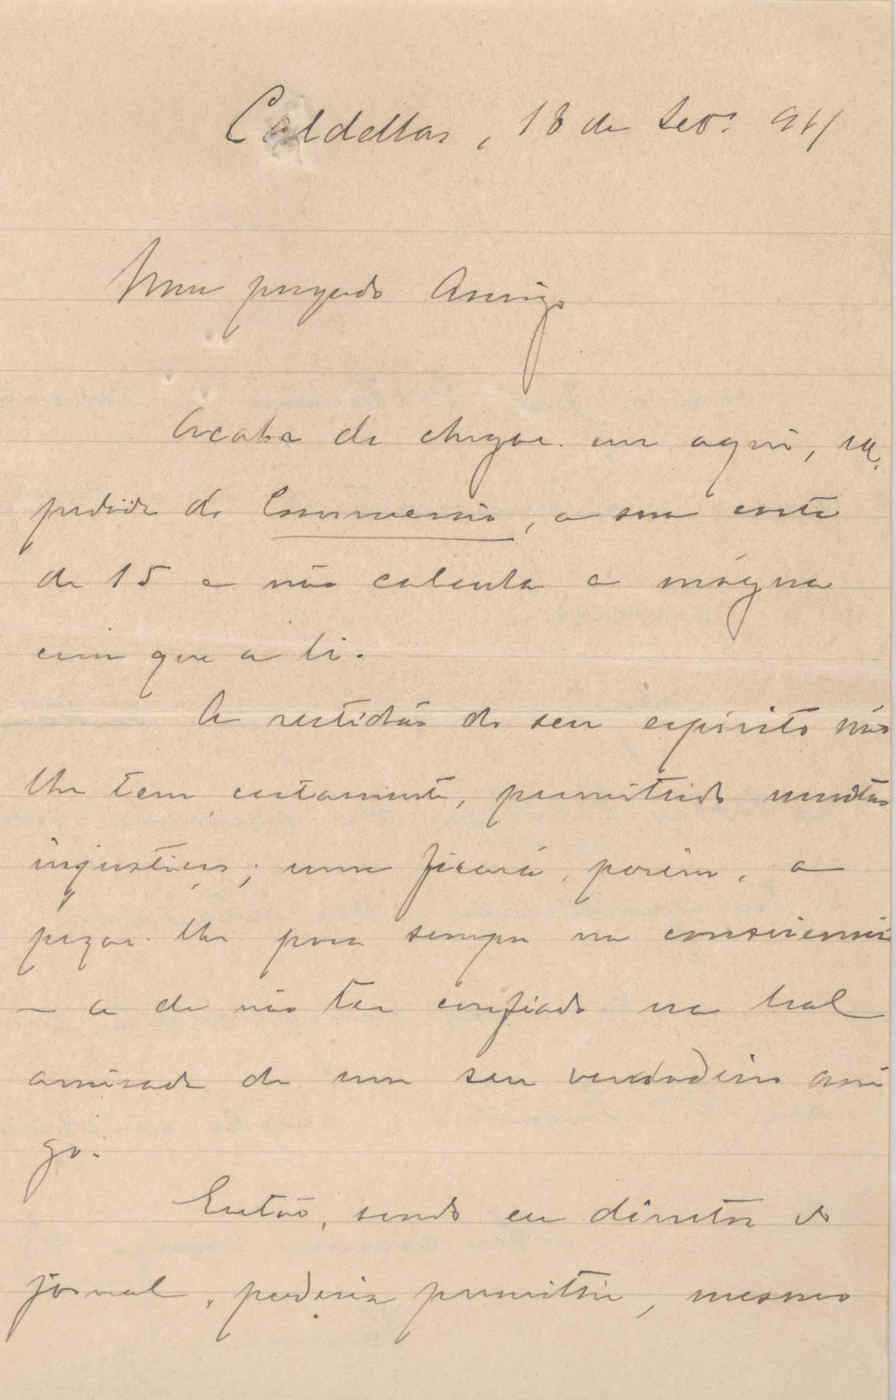 Caldellas, 18 de Set.º 94
Meu presado Amigo
Acaba de chegar-me aqui, ex-
pedida do Commercio, a sua carta
de 15 e não calcula a mágua
com que a li.
A rectidão do seu espirito não
lhe tem, certamente, permittido muitas
injustiças; uma ficará, porém, a
pezar-lhe para sempre na consciencia
— a de não ter confiado na leal
amisade de um seu verdadeiro ami
go.
Então, sendo eu director do
jornal, poderia permittir, mesmo